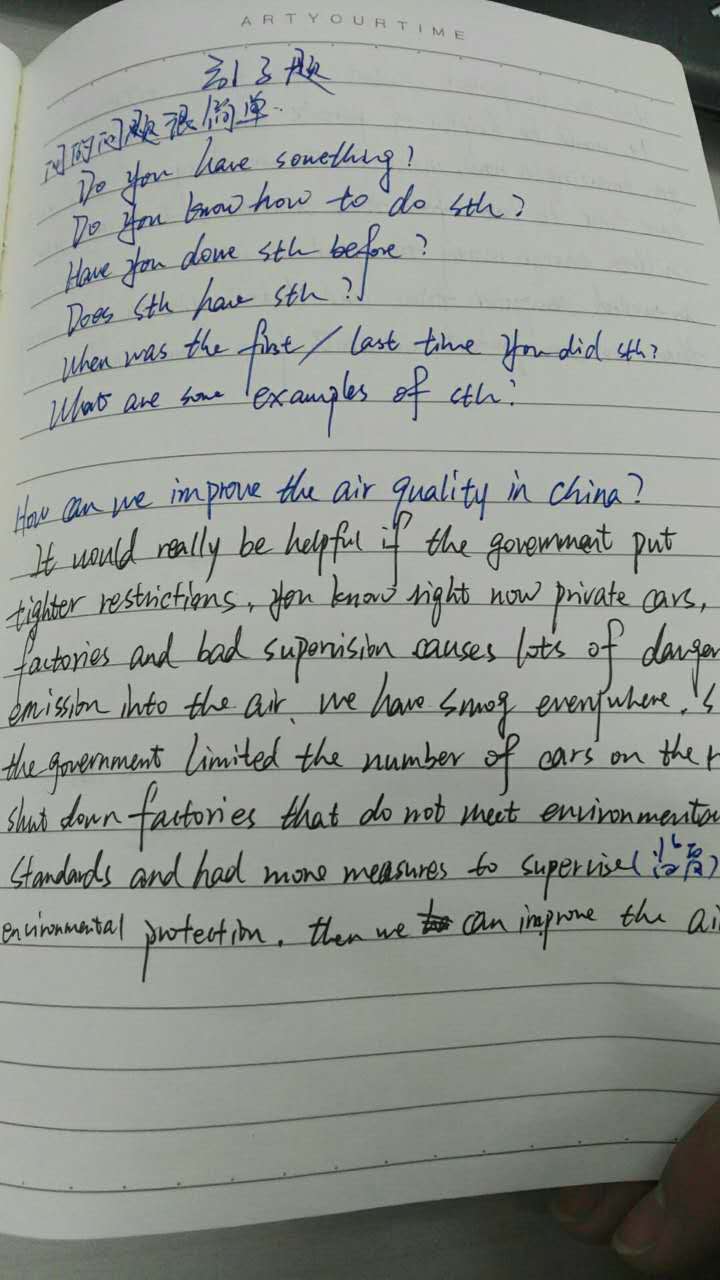 ARTYOURTIME
问的问题很简单.
Do you have something?
Do you know how to do sth?
Have you done sth before?
Does sth have sth?
When was the first / last time you did sth?
What are some examples of sth?
How can we improve the air quality in china?
It would really be helpful if the government put
tighter restrictions, you know right now private cars,
factories and bad supervision causes lots of danger
emission into the air. we have smog everywhere. S
the government limited the number of cars on the r
shut down factories that do not meet environmenta
standards and had more measures to supervise(
environmental protection. then we can improve the ai